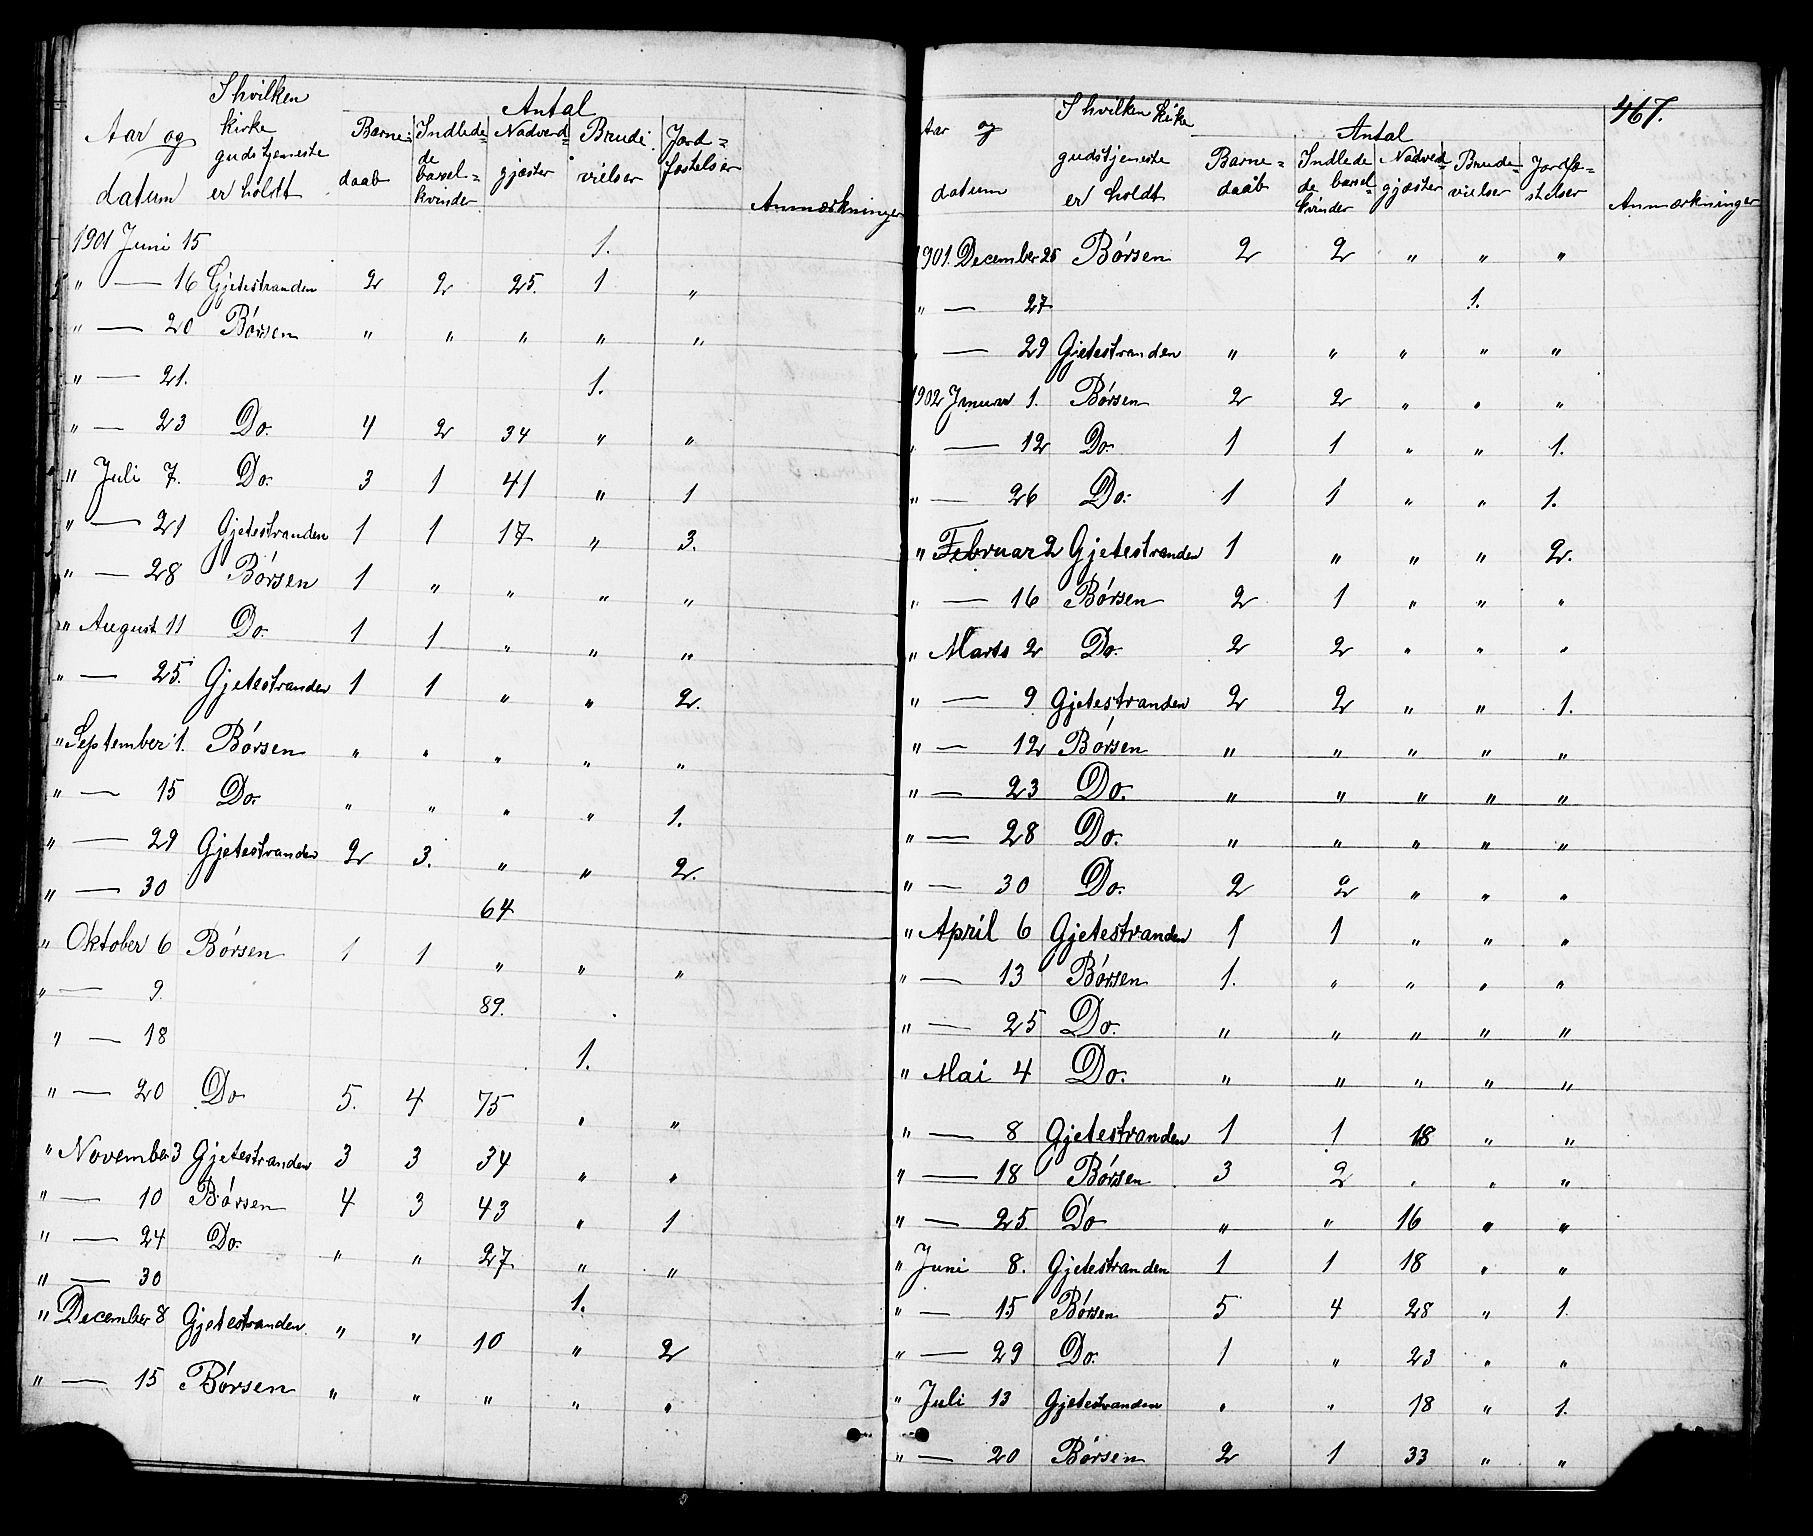 Aar og datum | I hvilken kirke gudstjeneste er holdt | Antal
Barnedaab | Indledede barselkvinder | Nadverdgjæster | Brudevielser | Jordfæstelser | Anmærkninger
1901 Juni 15 1.
" — 16 Gjetestranden 2 2 25. 1 "
" — 20 Børsen " " " " "
" — 21. 1.
" — 23 Do. 4 2 34 " "
" Juli 7. Do. 3 1 41 " 1
" — 21 Gjetestranden 1 1 17 " 3.
" — 28 Børsen 1 " " " "
" August 11 Do. 1 1 " " "
" — 25. Gjetestranden 1 1 " " 2.
" September 1. Børsen " " " " "
" — 15 Do. " " " " 1.
" — 29 Gjetestranden 2 3. " " 2.
" — 30 64
" Oktober 6 Børsen 1 1 " " "
" — 9. 89.
" — 18 1.
" — 20 Do 5. 4 75 " "
" November 3 Gjetestranden 3 3 34 " "
" — 10 Børsen 4 3 43 " 1
" — 24 Do. " " 27 " "
" — 30 1.
" December 8 Gjetestranden " " 10 " 2
" — 15 Børsen " " " " "
467.
Aar og datum | I hvilken kirke gudstjeneste er holdt | Antal
Barnedaab | Indledede barselkvinder | Nadverdgjæster | Brudevielser | Jordfæstelser | Anmærkninger
1901. December 25 Børsen 2 2 " " "
" — 27 1.
" — 29 Gjetestranden " " " " "
1902 Januar 1. Børsen 2 2 " " "
" — 12 Do. 1 1 " " 1.
" — 26 Do. 1 1 " " 1.
" Februar 2 Gjetestranden 1 " " " 2.
" — 16 Børsen 2 1 " " "
" Marts 2 Do. 2 2 " " "
" — 9 Gjetestranden 2 2 " " 1.
" — 12 Børsen " " " " "
" — 23 Do. " " " " "
" — 28 Do. " " " " "
" — 30 Do. 2 2 " " "
" April 6 Gjetestranden 1 1 " " "
" — 13 Børsen 1. " " " "
" — 25 Do. " " " " "
" Mai 4 Do. " " " " "
" — 8 Gjetestranden 1 1 18 " "
" — 18 Børsen 3 2 " " "
" — 25. Do " " 16 " "
" Juni 8. Gjetestranden 1 1 18 " "
" — 15 Børsen 5 4 28 " 1.
" — 29 Do. 1 " 23 " "
" Juli 13 Gjetestranden " " 18 " 1.
" — 20 Børsen 2 1 33 " "